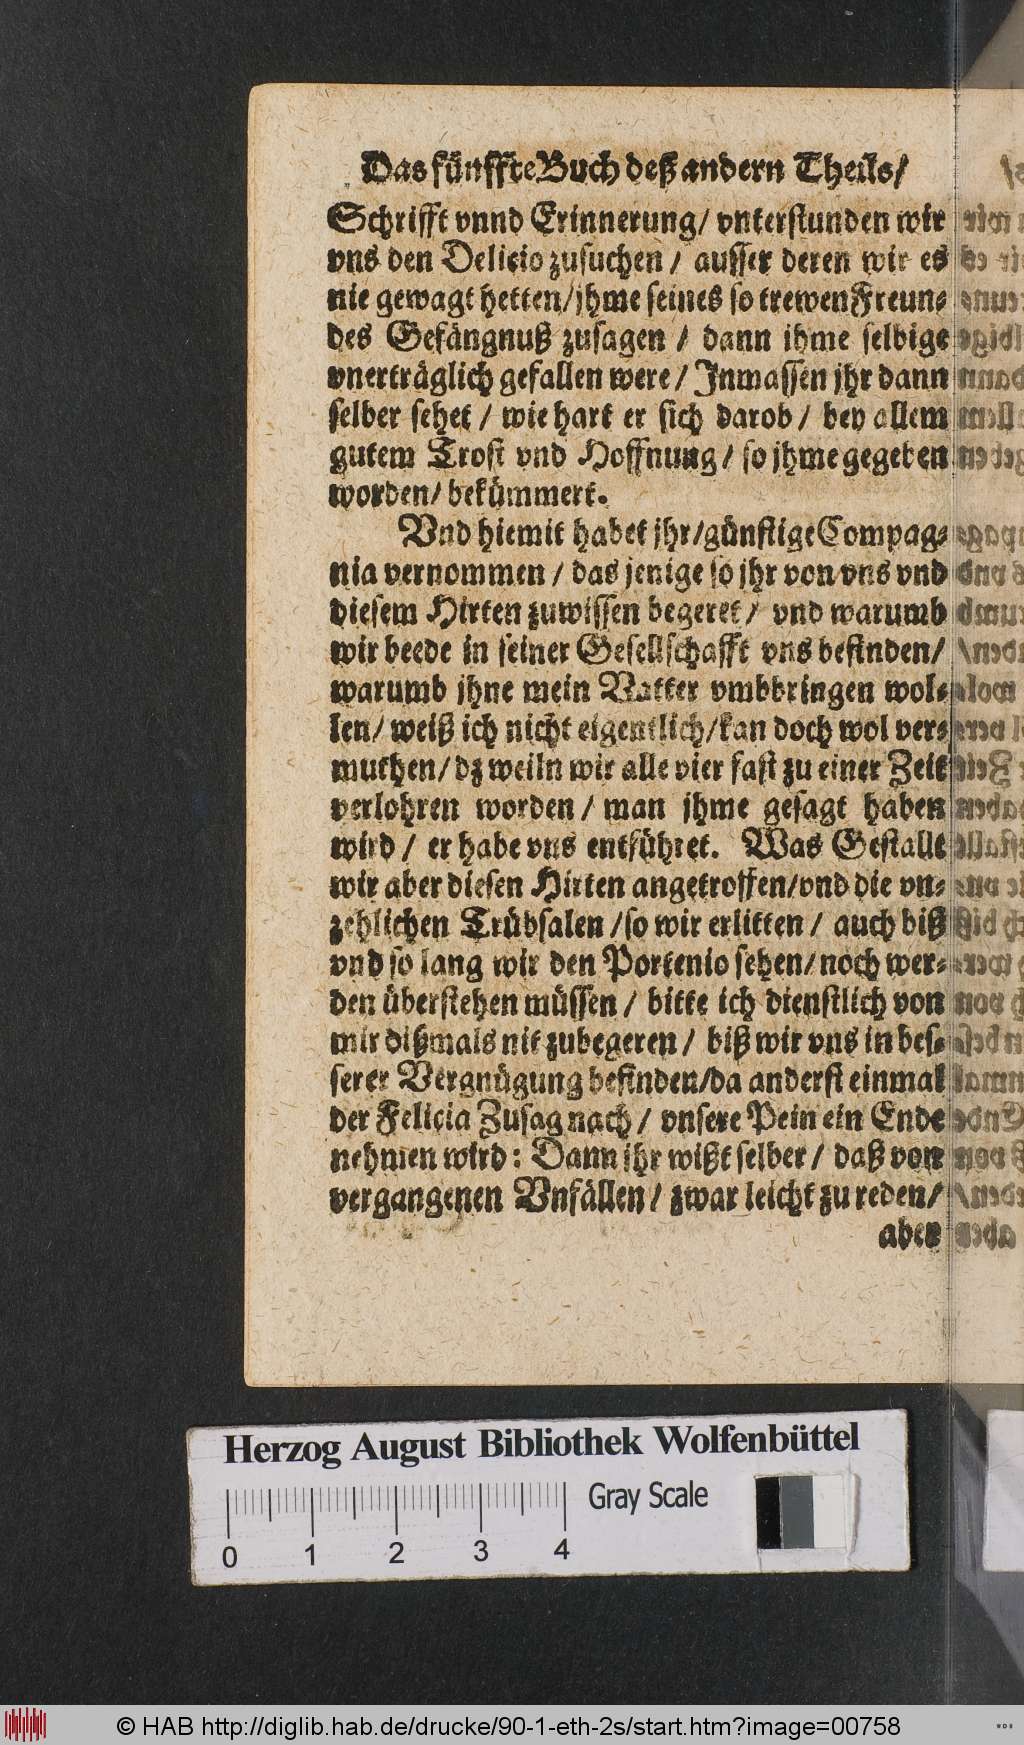 Das fünffte Buch deß andern Theils/
Schrifft vnnd Erinnerung/ vnterstunden wir
vns den Delicio zusuchen / ausser deren wir es
nie gewagt hetten/jhme seines so trewen Freun-
des Gefängnuß zusagen / dann ihme selbige
vnerträglich gefallen were / Inmassen jhr dann
selber sehet / wie hart er sich darob / bey allem
gutem Trost vnd Hoffnung / so jhme gegeben
worden/ bekümmert.
Vnd hiemit habet jhr/günstige Compag-
nia vernommen / das jenige so jhr von vns vnd
diesem Hirten zuwissen begeret / vnd warumb
wir beede in seiner Gesellschafft vns befinden/
warumb jhne mein Vatter vmbbringen wol-
len/ weiß ich nicht eigentlich/kan doch wol ver-
muthen/ dz weiln wir alle vier fast zu einer Zeit
verlohren worden / man jhme gesagt haben
wird / er habe vns entführet. Was Gestallt
wir aber diesen Hirten angetroffen/vnd die vn-
zehlichen Trübsalen /so wir erlitten / auch biß
vnd so lang wir den Portenio sehen/ noch wer-
den überstehen müssen / bitte ich dienstlich von
mir dißmals nit zubegeren / biß wir vns in bes-
serer Vergnügung befinden/da anderst einmal
der Felicia Zusag nach / vnsere Pein ein Ende
nehmen wird: Dann jhr wißt selber / daß von
vergangenen Vnfällen / zwar leicht zu reden/
aber
Herzog August Bibliothek Wolfenbüttel
Gray Scale
0 1 2 3 4
© HAB http://diglib.hab.de/drucke/90-1-eth-2s/start.htm?image=00758